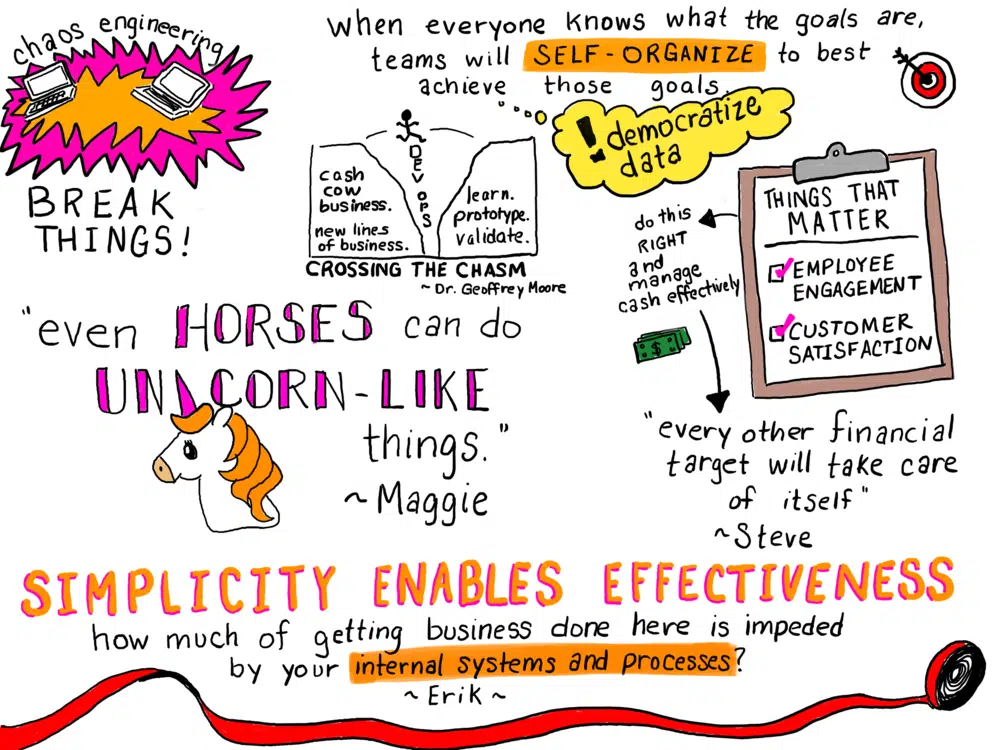 chaos engineering
BREAK
THINGS!
when everyone knows what the goals are,
teams will SELF-ORGANIZE to best
achieve those goals.
! democratize
data
DEVOPS
cash
cow
business.
new lines
of business.
learn.
prototype.
validate.
CROSSING THE CHASM
~ Dr. Geoffrey Moore
THINGS THAT
MATTER
EMPLOYEE
ENGAGEMENT
CUSTOMER
SATISFACTION
do this
RIGHT
and
manage
cash effectively
$
"every other financial
target will take care
of itself"
~Steve
"even HORSES can do
UNICORN-LIKE
things."
~Maggie
SIMPLICITY ENABLES EFFECTIVENESS
how much of getting business done here is impeded
by your internal systems and processes?
~Erik~